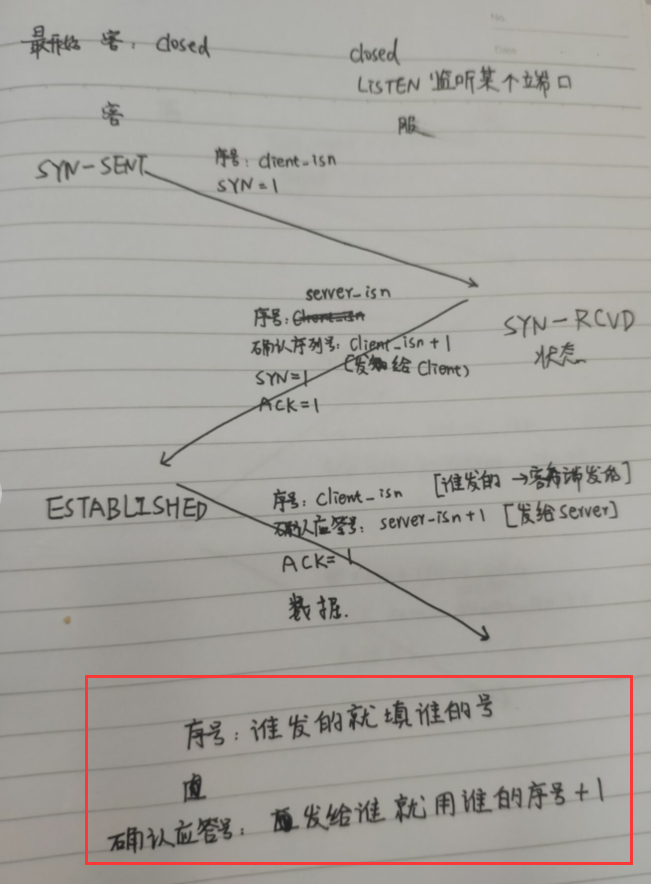 最开始 客: closed
closed
LISTEN 监听某个端口
客
服
SYN-SENT
序号: client_isn
SYN=1
server_isn
序号: client_isn
确认序列号: client_isn+1
(发给Client)
SYN=1
ACK=1
SYN-RCVD
状态
ESTABLISHED
序号: client_isn [谁发的→客户端发的]
确认应答号: server-isn+1 [发给server]
ACK=1
数据.
序号: 谁发的就填谁的号
确认应答号: 发给谁就用谁的序号+1